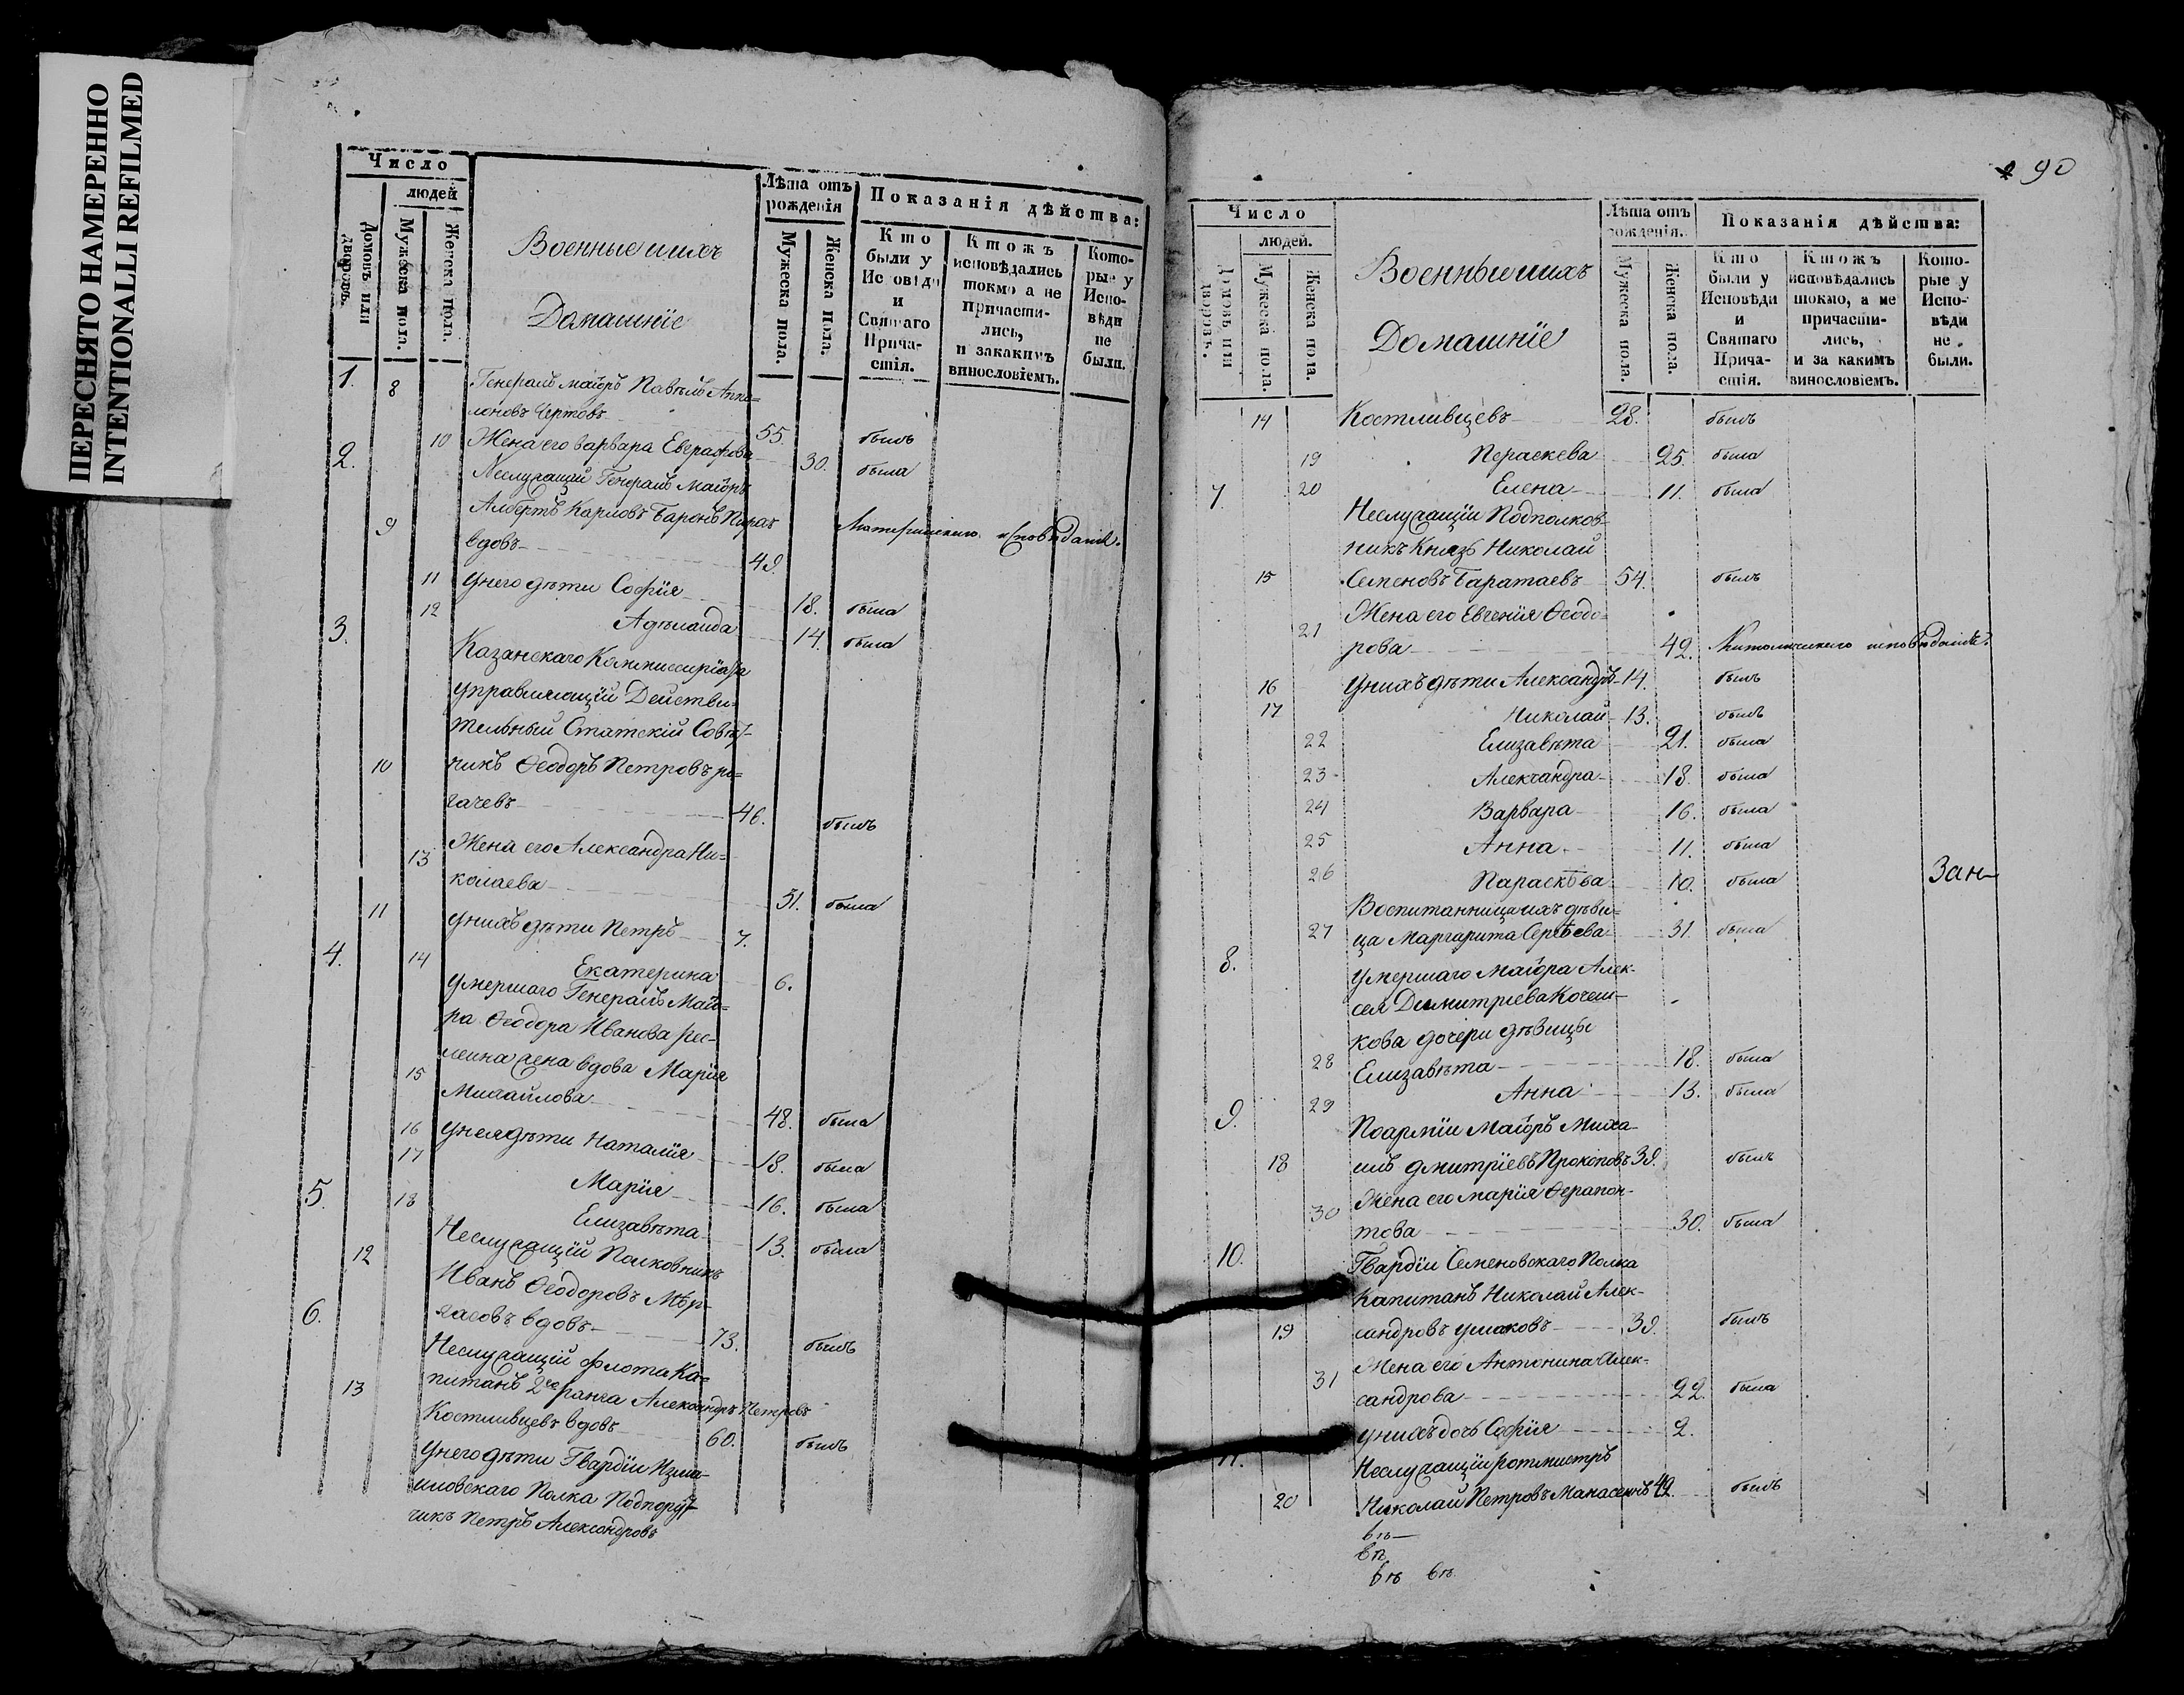 ПЕРЕСНЯТО НАМЕРЕННО
INTENTIONALLI REFILMED
Число
людей
Домовъ или дворовъ.
Мужеска пола.
Женска пола.
Военные и ихъ
Домашнїе
Лѣта отъ рожденія
Мужеска пола.
Женска пола.
Показанія дѣйства:
Кто были у Исповѣди и Святаго Причастія.
Ктожъ исповѣдались токмо а не причастились, и закакимъ винословіемъ.
Которые у Исповѣди не были.
1. 8 Генералъ маіоръ Павѣлъ Аппо=
лоновъ Чертовъ 55. былъ
10 Жена его Варвара Евграфова 30. была
2. Неслужащій Генералъ Маіоръ
9 Албертъ Карловъ Баронъ Пирхъ
вдовъ 49. Лютеранскаго исповѣданія.
11 У него дѣти Софїя 18. была
12 Аделаида 14. была
3. Казанскаго Коммиссаріата
управляющїй Действи=
тельный Статскїй Совѣт-
10 никъ Ѳеодоръ Петровъ ро=
гачевъ 46. былъ
13 Жена его Александра Ни=
колаева 31. была
11 У нихъ дѣти Петръ 7.
14 Екатерина 6.
4. Умершаго Генералъ Маіо=
ра Ѳеодора Иванова
15 жена вдова Марїя
Михайлова 48. была
16 У нея дѣти Наталїя 18. была
17 Марїя 16. была
18 Елизавѣта 13. была
5. Неслужащїй Полковникъ
12 Иванъ Ѳеодоровъ Мѣр-
гасовъ вдовъ 73. былъ
6. Неслужащїй флота Ка=
13 питанъ 2го ранга Александръ Петровъ
Костливцевъ вдовъ 60. былъ
У него дѣти Гвардїи Изма-
иловскаго Полка Подпорут-
чикъ Петръ Александровъ
90
Число
людей.
Домовъ или дворовъ.
Мужеска пола.
Женска пола.
Военные и ихъ
Домашнїе
Лѣта отъ рожденія.
Мужеска пола.
Женска пола.
Показанія дѣйства:
Кто были у Исповѣди и Святаго Причастія.
Ктожъ исповѣдались токмо, а не причастились, и за какимъ винословіемъ.
Которые у Исповѣди не были.
14 Костливцевъ 28. былъ
19 Параскева 25. была
20 Елена 11. была
7. Неслужащїи Подполков-
никъ Князь Николай
15 Семеновъ Баратаевъ 54. былъ
Жена его Евгенїя Ѳеодо=
21 рова 42. Католическаго исповѣданія.
16 У нихъ дѣти Александръ 14. былъ
17 Николай 13. былъ
22 Елизавѣта 21. была
23 Александра 18. была
24 Варвара 16. была
25 Анна 11. была
26 Параскѣва 10. была Зан
Воспитанница ихъ дѣви=
27 ца Маргарита Сергѣева 31. была
8. Умершаго Маіора Алек-
сея Димитрїева Кочеш-
кова дочери дѣвицы
28 Елизавѣта 18. была
29 Анна 13. была
9. По армїи Маіоръ Миха-
18 илъ Дмитрїевъ Прокоповъ 39. былъ
Жена его Марїя Ѳерапон-
30 това 30. была
10. Гвардїи Семеновскаго Полка
Капитанъ Николай Алек-
19 сандровъ Ушаковъ 39. былъ
Жена его Антонина Алек-
31 сандрова 22. была
У нихъ дочь Софїя 2.
11. Неслужащїи ротмистръ
20 Николай Петровъ Манасеинъ 42. былъ
въ
въ
въ въ